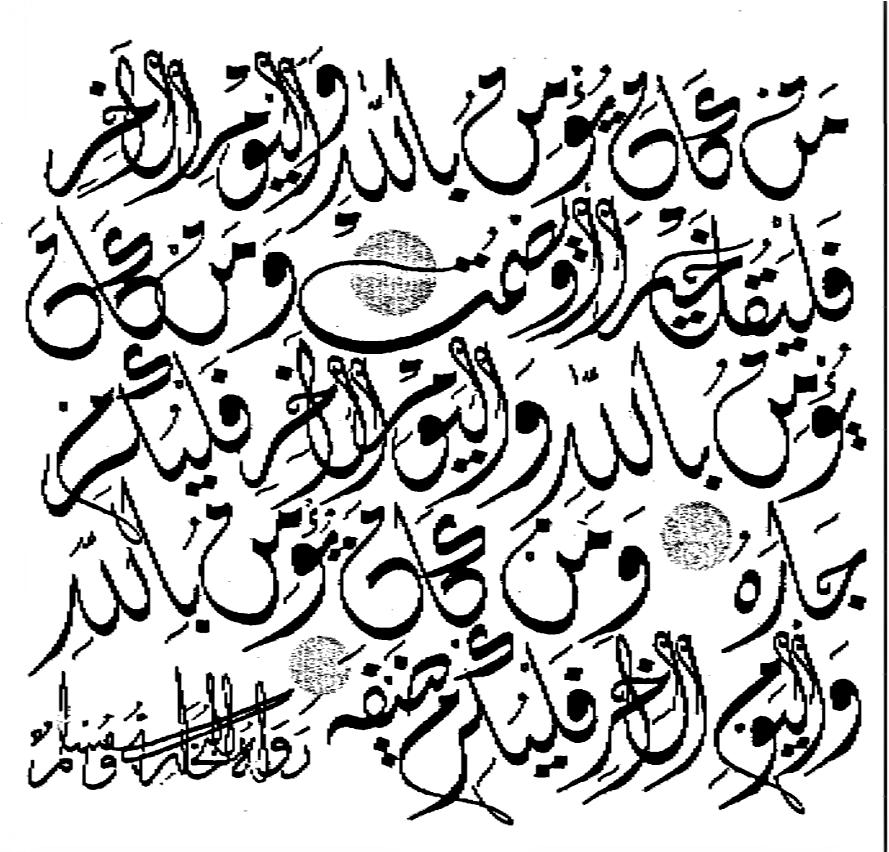 مَنْ كَانَ يُؤْمِنُ بِاللّٰهِ وَالْيَوْمِ الْآخِرِ
فَلْيَقُلْ خَيْرًا أَوْ لِيَصْمُتْ وَمَنْ كَانَ
يُؤْمِنُ بِاللّٰهِ وَالْيَوْمِ الْآخِرِ فَلْيُكْرِمْ
جَارَهُ وَمَنْ كَانَ يُؤْمِنُ بِاللّٰهِ
وَالْيَوْمِ الْآخِرِ فَلْيُكْرِمْ ضَيْفَهُ
رَوَاهُ الْبُخَارِيُّ وَمُسْلِمٌ